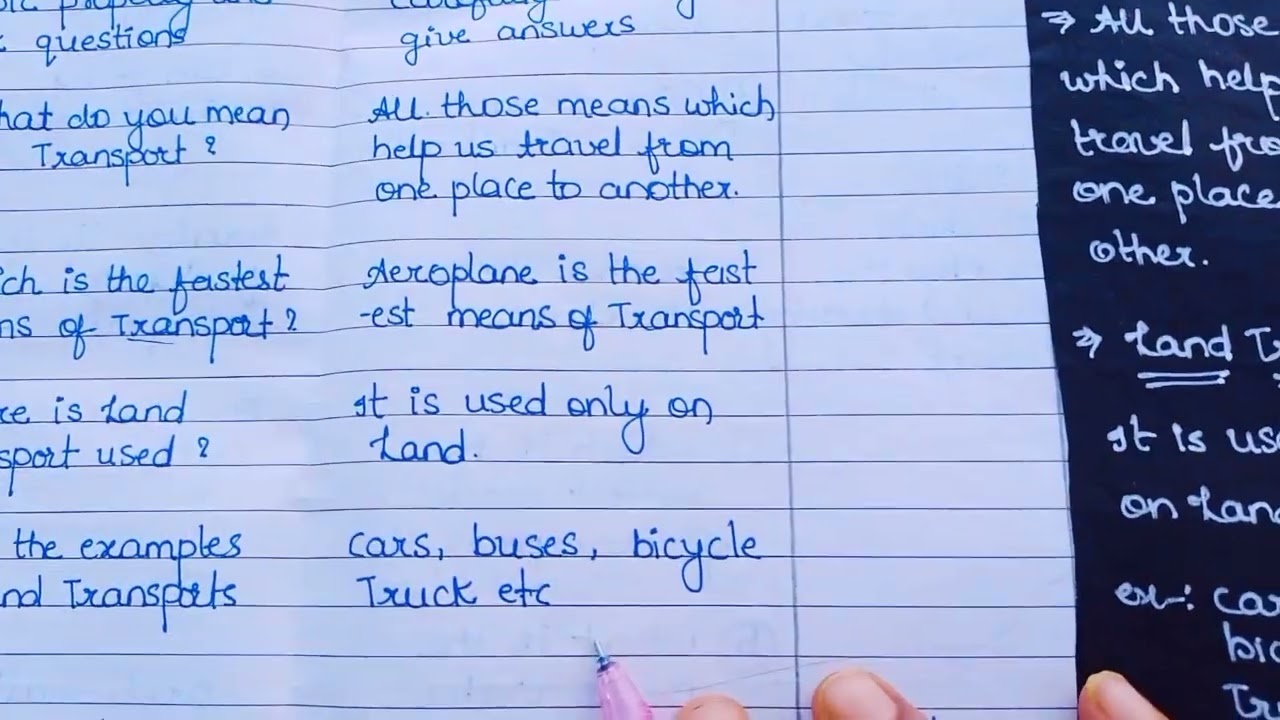 questions
give answers
hat do you mean
Transport ?
All those means which
help us travel from
one place to another.
ch is the fastest
ns of Transport ?
Aeroplane is the fast
-est means of Transport
re is Land
sport used ?
It is used only on
Land.
the examples
nd Transports
cars, buses, bicycle
Truck etc
⇒ All those
which help
travel fro
one place
other.
⇒ Land Tr
It is us
on Land
ex-: car
bic
Tr